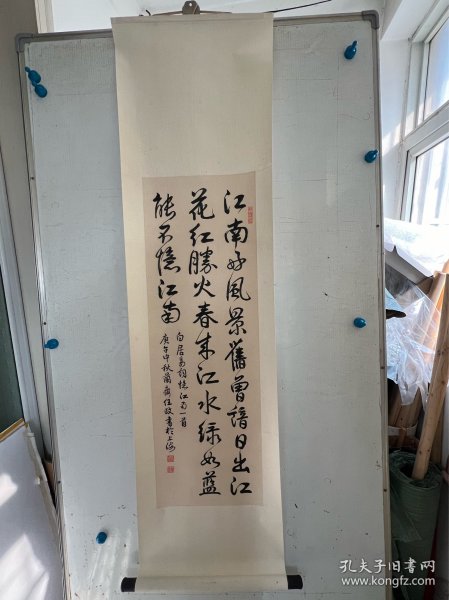 江南好風景舊曾諳日出江
花紅勝火春來江水綠如藍
能不憶江南
白居易詞憶江南一首
庚午中秋蘭齋任政書於上海
孔夫子旧书网
www.kongfz.com